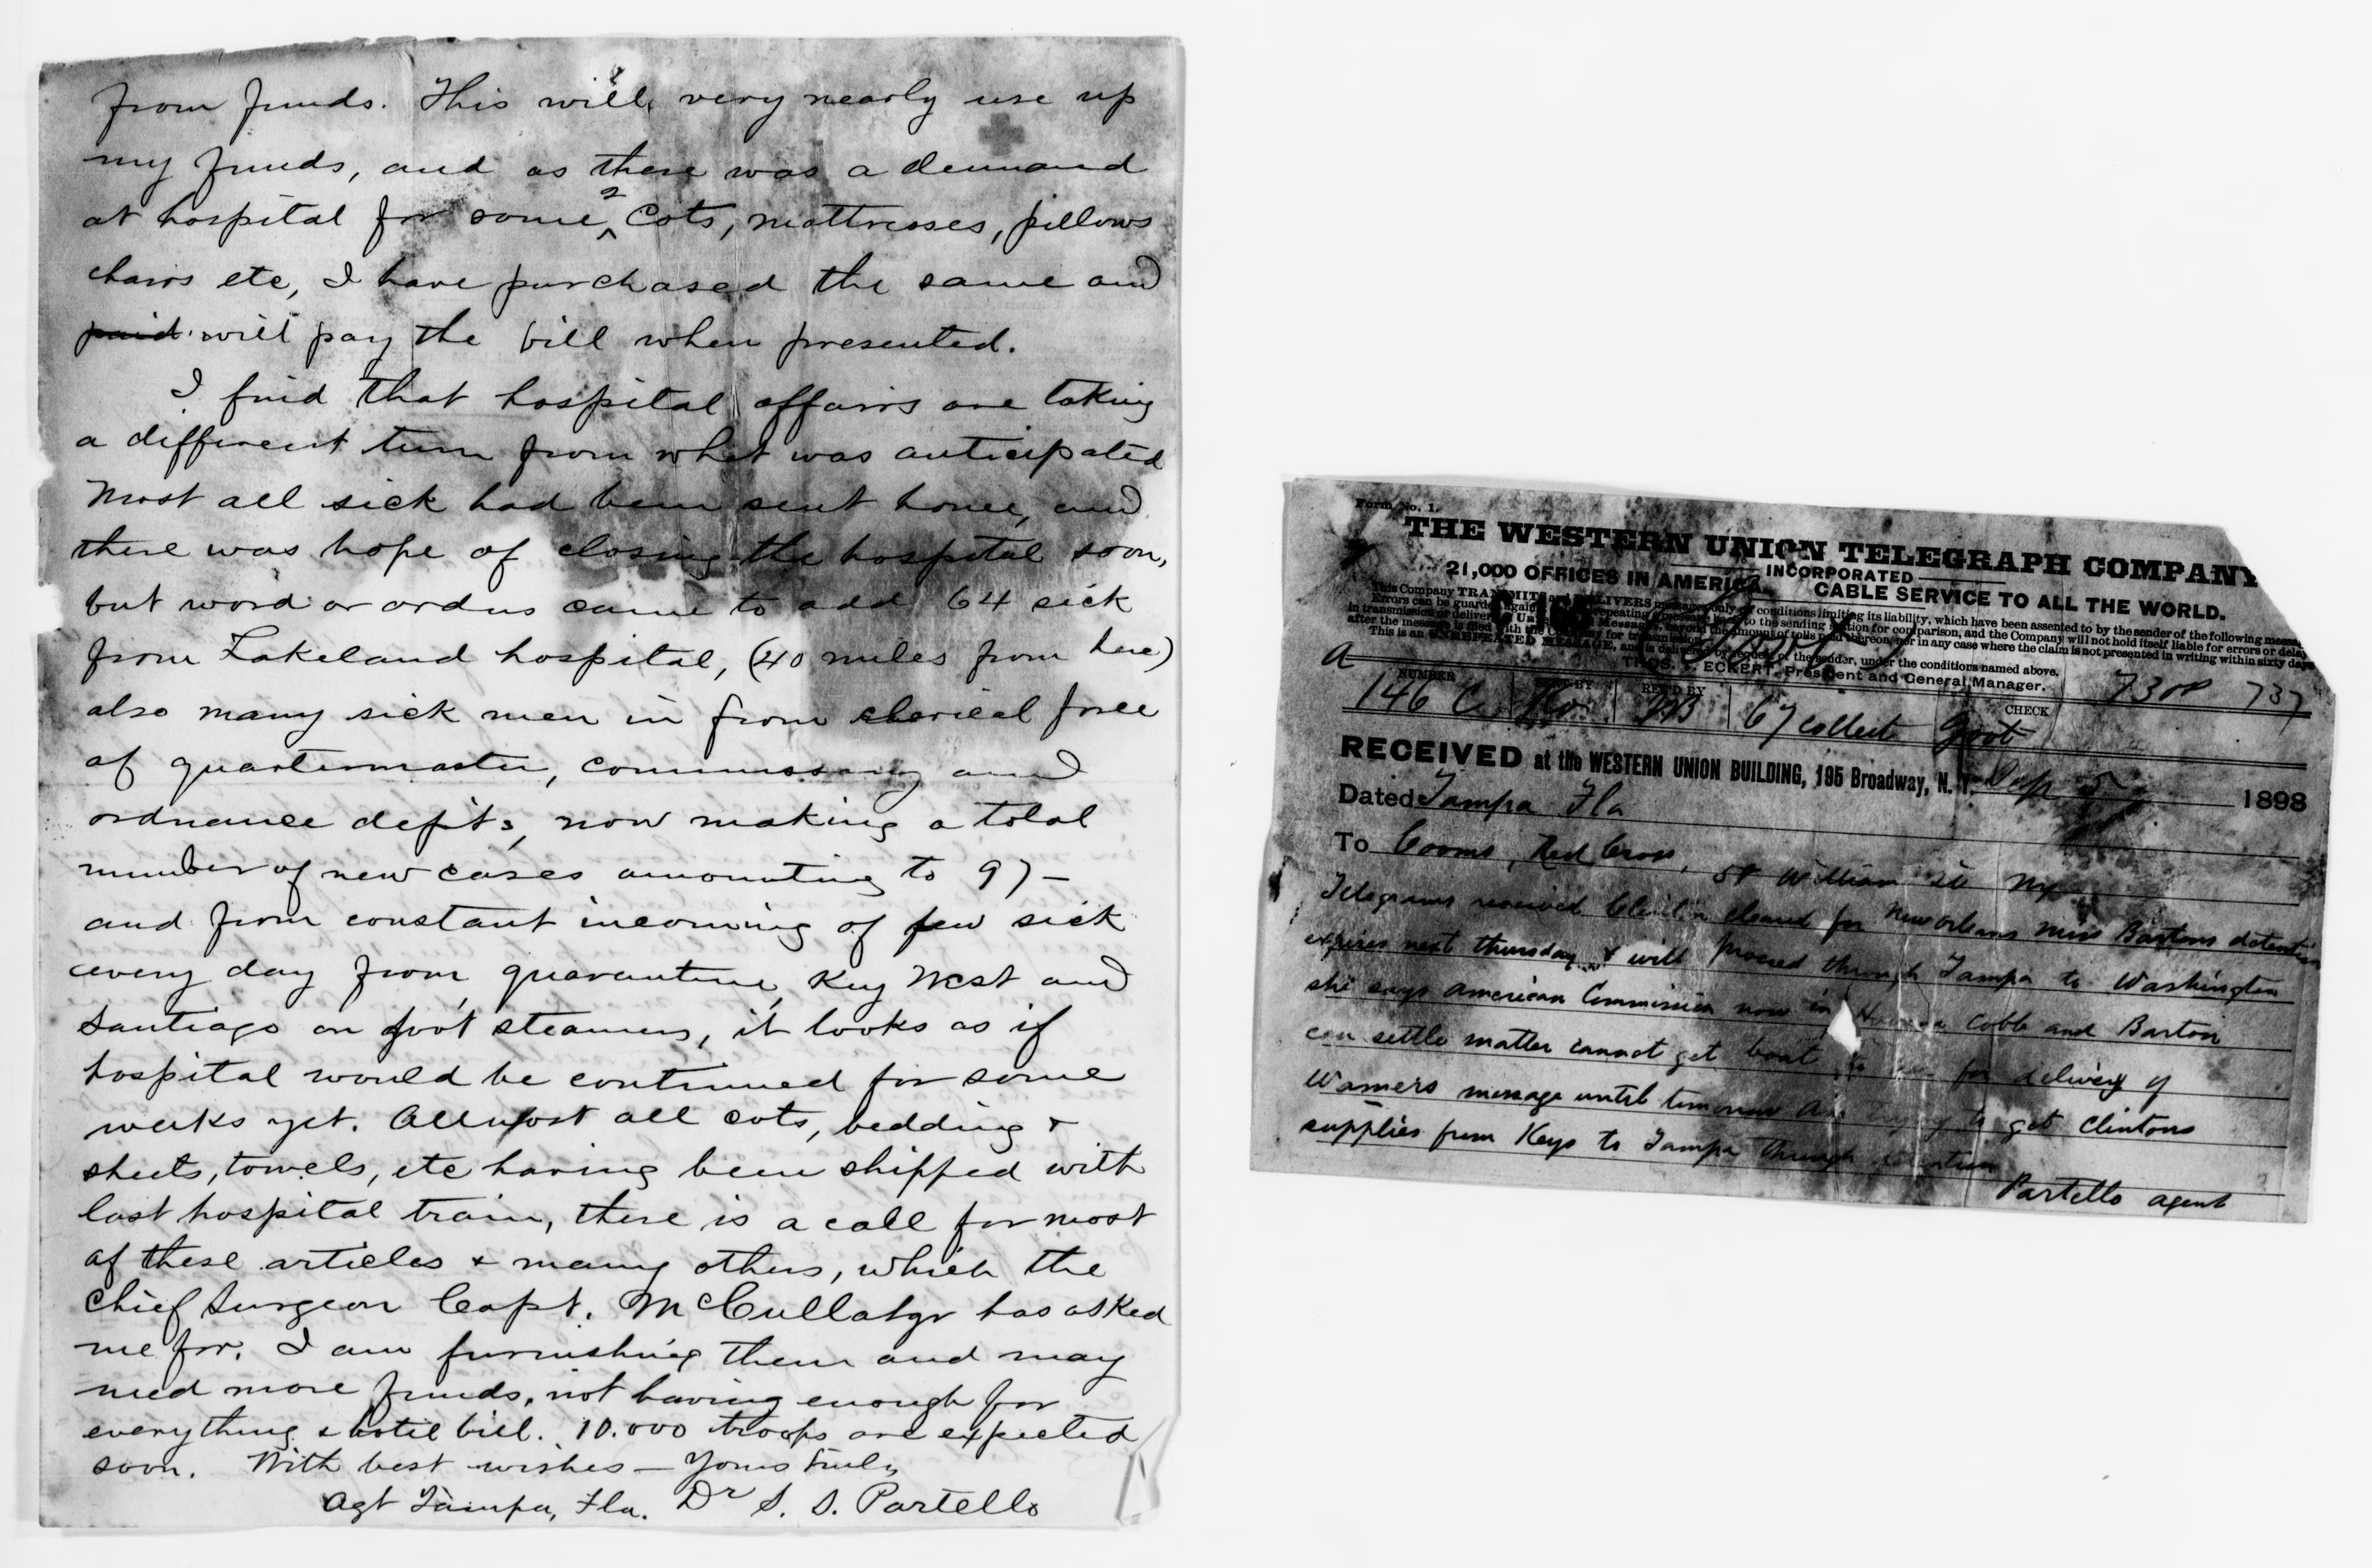 from funds. This will very nearly use up
my funds, and as there was a demand
at hospital for some 2 cots, mattresses, pillows
chairs etc, I have purchased the same and
paid will pay the bill when presented.
I find that hospital affairs are taking
a different turn from what was anticipated
Most all sick had been sent home, and
there was hope of closing the hospital soon,
but word or orders came to add 64 sick
from Lakeland hospital, (40 miles from here)
also many sick men in from clerical force
of quartermaster, commissary and
ordnance depts, now making a total
number of new cases amounting to 97 —
and from constant incoming of few sick
every day from quarantine, Key West and
Santiago on govt steamers, it looks as if
hospital would be continued for some
weeks yet. Allmost all cots, bedding &
sheets, towels, etc having been shipped with
last hospital train, there is a call for most
of these articles & many others, which the
Chief Surgeon Capt. has asked
me for. I am furnishing them and may
need more funds, not having enough for
everything & hotel bill. 10.000 troops are expected
soon. With best wishes — Yours truly
Agt Tampa, Fla. Dr S. S. Partello
Form No. 1.
THE WESTERN UNION TELEGRAPH COMPANY
INCORPORATED
21,000 OFFICES IN AMERICA. CABLE SERVICE TO ALL THE WORLD.
This Company TRANSMITS and DELIVERS messages only on conditions limiting its liability, which have been assented to by the sender of the following
Errors can be guarded against repeating a message back to the sending station for comparison, and the Company will not hold itself liable for errors or
in transmission or delivery of Unrepeated Messages, beyond the amount of tolls paid thereon, nor in any case where the claim is not presented in writing within sixty days
after the message is filed with the Company for transmission.
This is an UNREPEATED MESSAGE, and is delivered by request of the sender, under the conditions named above.
THOS. T. ECKERT, President and General Manager.
a
NUMBER SENT BY REC'D BY CHECK
146 C 67 collect Govt 730P 737
RECEIVED at the WESTERN UNION BUILDING, 195 Broadway, N. Y. Sep 5 1898
Dated Tampa Fla
To Cooms, Red Cross, William St NY
Telegrams received Clinton cleared for New Orleans Miss Bartons detention
expires next thursday & will proceed through Tampa to Washington
she says American Commission now in Cobb and Barton
can settle matter cannot get boat for delivery of
Warners message until tomorrow to get Clintons
supplies from Keys to Tampa through
Partello agent